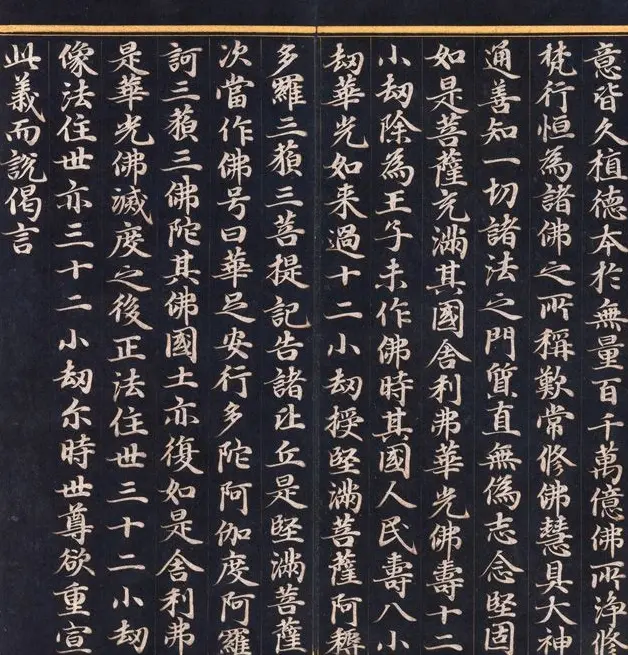 意皆久植德本於無量百千萬億佛所淨修
梵行恒為諸佛之所稱歎常修佛慧具大神
通善知一切諸法之門質直無偽志念堅固
如是菩薩充滿其國舍利弗華光佛壽十二
小劫除為王子未作佛時其國人民壽八小
劫華光如来過十二小劫授堅滿菩薩阿耨
多羅三藐三菩提記告諸比丘是堅滿菩薩
次當作佛号曰華足安行多陀阿伽度阿羅
訶三藐三佛陀其佛國土亦復如是舍利弗
是華光佛滅度之後正法住世三十二小劫
像法住世亦三十二小劫尒時世尊欲重宣
此義而說偈言